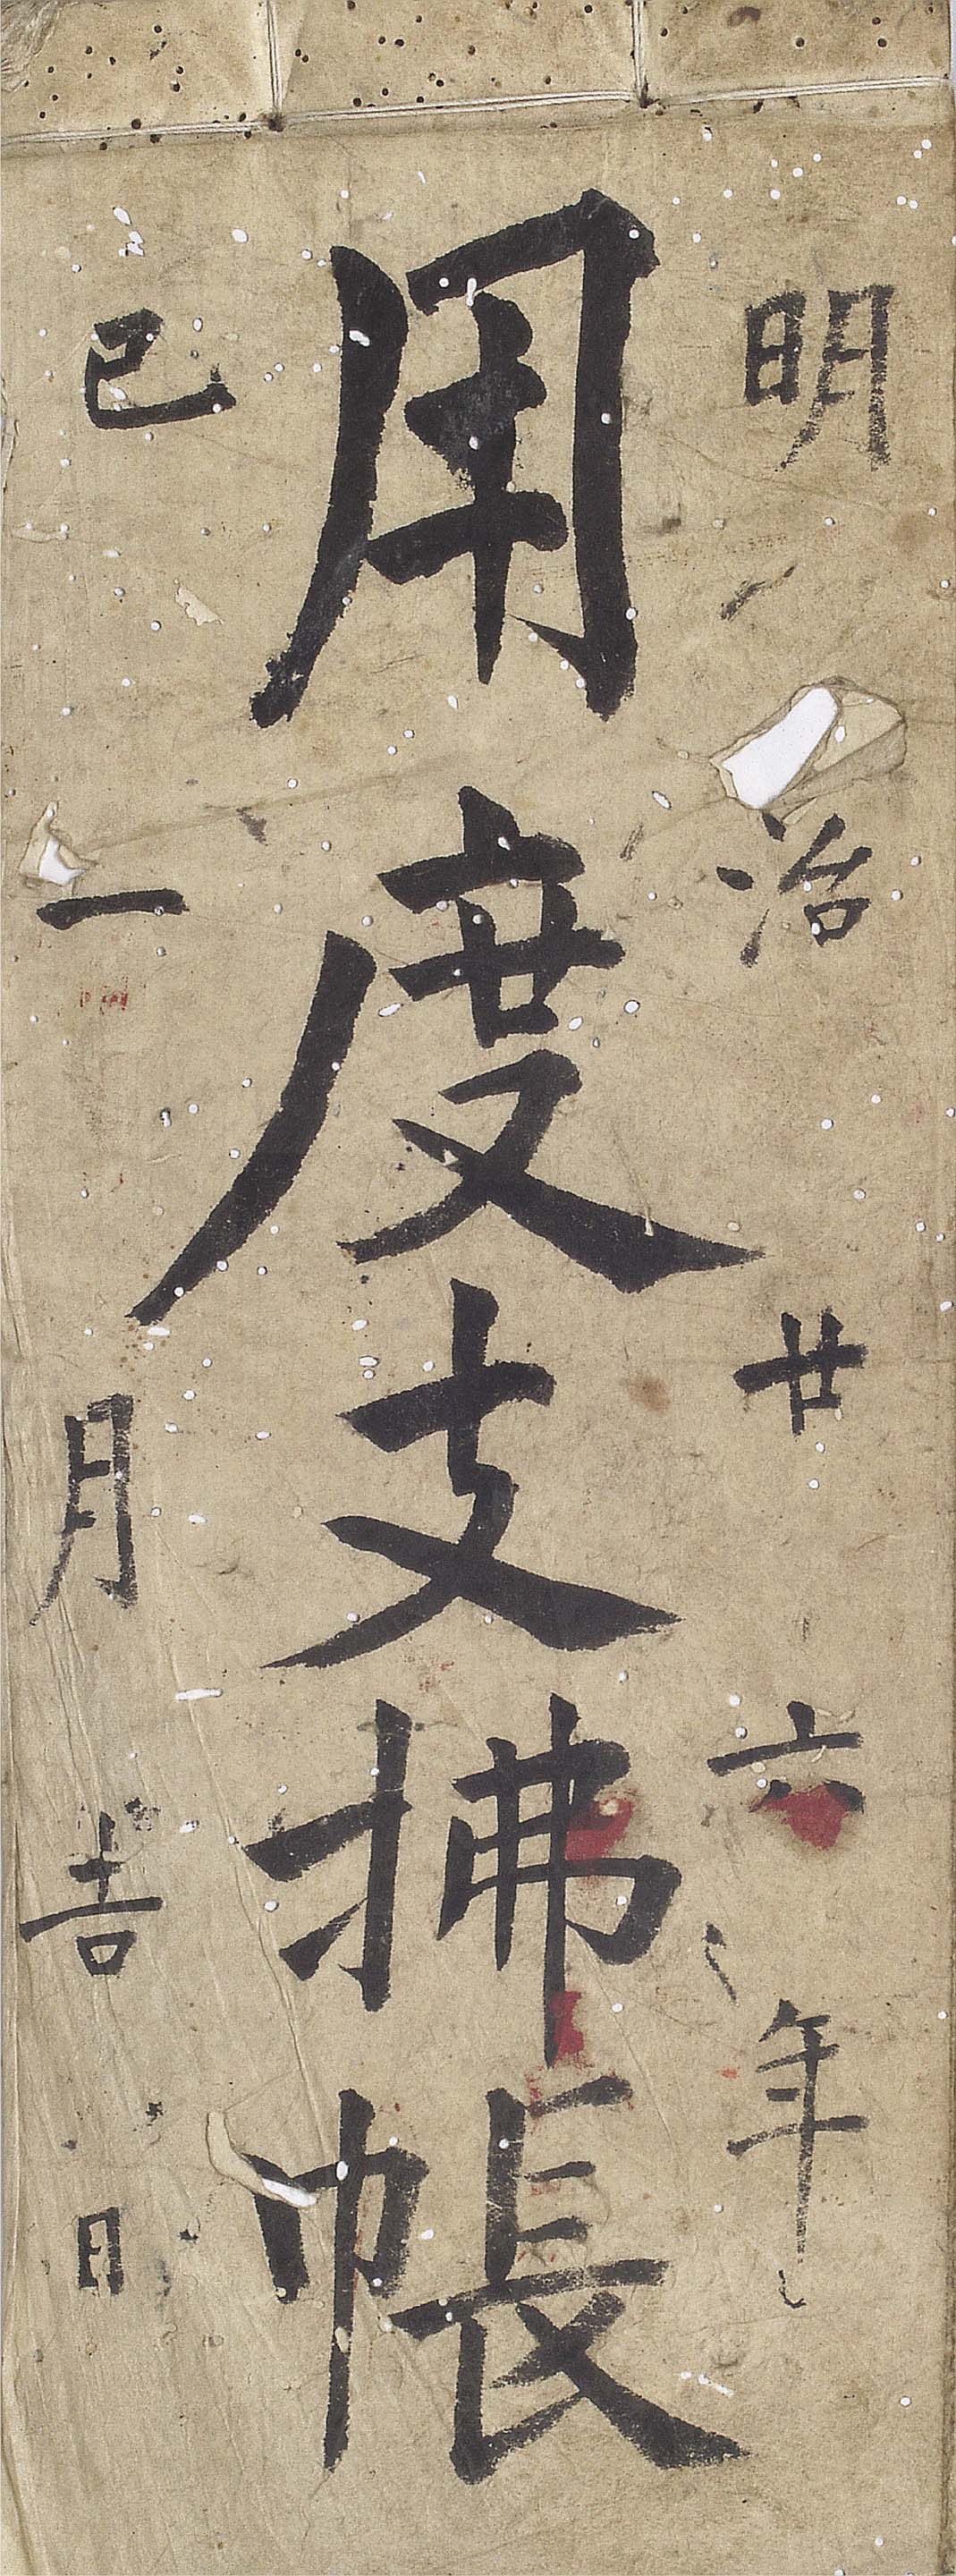 明治廿六年
用度支拂帳
巳一月吉日